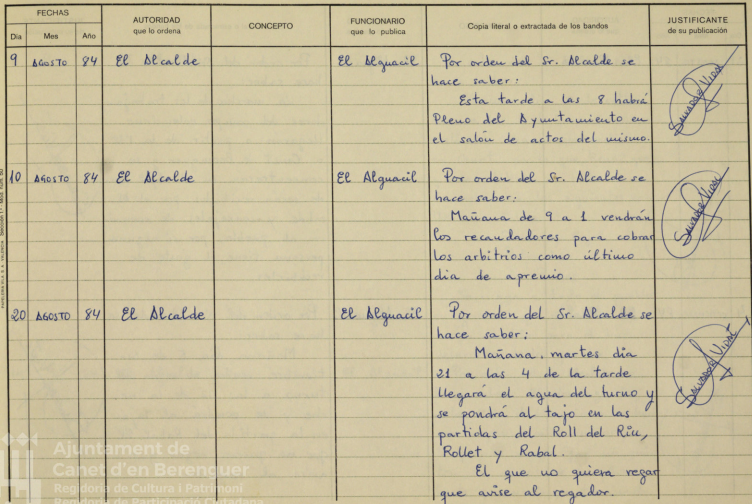 FECHAS
Dia Mes Año
AUTORIDAD
que lo ordena
CONCEPTO
FUNCIONARIO
que lo publica
Copia literal o extractada de los bandos
JUSTIFICANTE
de su publicación
9 AGOSTO 84 El Alcalde El Alguacil
Por orden del Sr. Alcalde se
hace saber:
Esta tarde a las 8 habrá
Pleno del Ayuntamiento en
el salón de actos del mismo.
Salvador Vidal
10 AGOSTO 84 El Alcalde El Alguacil
Por orden del Sr. Alcalde se
hace saber:
Mañana de 9 a 1 vendrán
los recaudadores para cobrar
los arbitrios como último
dia de apremio.
Salvador Vidal
20 AGOSTO 84 El Alcalde El Alguacil
Por orden del Sr. Alcalde se
hace saber:
Mañana, martes dia
21 a las 4 de la tarde
llegará el agua del turno y
se pondrá al tajo en las
partidas del Roll del Riu,
Rollet y Rabal.
El que no quiera regar
que avise al regador.
Salvador Vidal
Ajuntament de
Canet d'en Berenguer
Regidoria de Cultura i Patrimoni
Regidoria de Participació Ciutadana